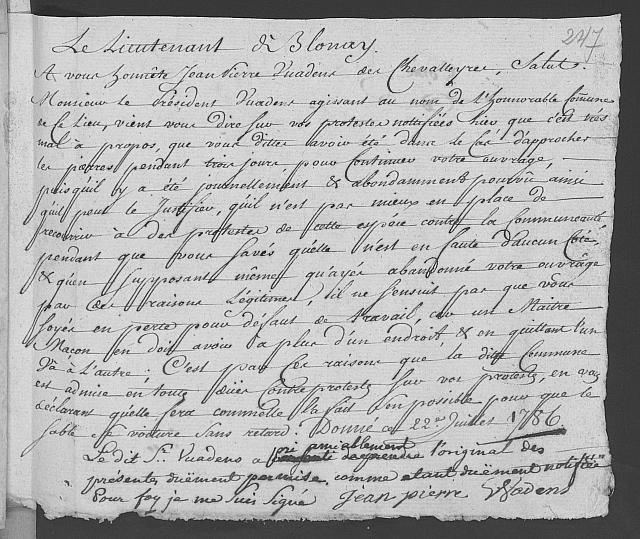 247
Le Lieutenant de Blonay.
A vous honnête Jean Pierre Vuadens des Chevalleyres, Salut.
Monsieur le Président Vuadens agissant au nom de L'honnorable Comune
de Ce Lieu, vient vous dire sur vos protestes notifiées hier que c'est très
mal à propos, que vous dittes avoir été dans le Cas d'approcher
les pierres pendant trois jours, pour Continuer votre ouvrage, -
puisqu'il y a été journellement & abondamment pourvû ainsi
qu'il peut le Justifier, qu'il n'est pas mieux en place de
recourir à des protestes de cette espéce contre la Communeauté
pendant que vous savés qu'elle n'est en faute d'aucun Coté,
& qu'en supposant même qu'ayés abandonné votre ouvrage
par des raisons Légitimes, il ne sensuit pas que vous
soyés en perte pour défaut de travail, car un Maitre
Maçon en doit avoir à plus d'un endroit, & en quittant l'un
Va à L'autre; C'est par Ces raisons que la ditte Commune
est admise en toutes dües Contreprotestes sur vos protestes, en vous
déclarant qu'elle fera comme elle la fait son possible pour que le
sable se voiture sans retard. Donné ce 22me Juillet 1786
Le dit Sr. Vuadens a prié amiablement
de prendre l'original des
présentes düement permise, comme étant düement notifiée
Pour foy je me suis signé Jean pierre Vuadens